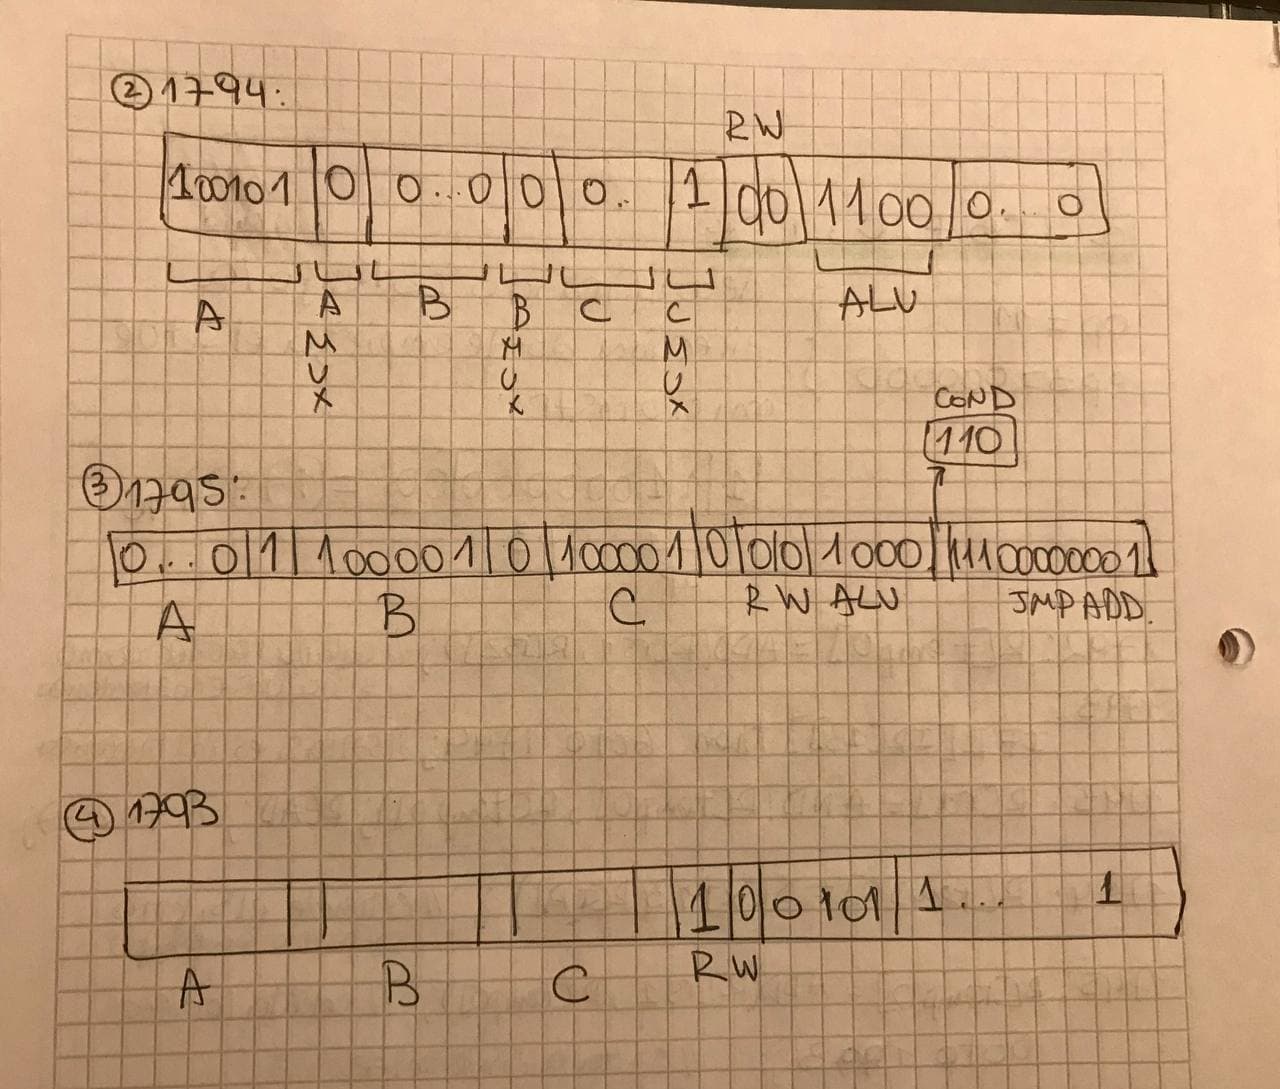 ② 1794:
RW
100101 0 0...0 0 0.. 1 00 1100 0...0
A A MUX B B MUX C C MUX ALU
COND
110
③ 1795:
0...0 1 100001 0 100001 0 0 0 1000 11100000001
A B C RW ALU JMP ADD.
④ 1793
1 0 0101 1... 1
A B C RW